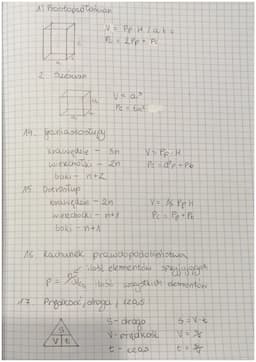 1. Prostopadłościan
V = Pp · H / a b c
Pc = 2Pp + Pb
2. Sześcian
V = a³
Pc = 6a²
14. Graniastosłupy
krawędzie - 3n
wierzchołki - 2n
boki - n+2
V = Pp · H
Pc = 2Pp + Pb
15. Ostrosłup
krawędzie - 2n
wierzchołki - n+1
boki - n+1
V = ⅓ Pp H
Pc = Pp + Pb
16. Rachunek prawdopodobieństwa
ilość elementów
ilość wszystkich elementów
17. Prędkość, droga, czas
S
V t
s - droga
V - prędkość
t - czas
s = V · t
V = s/t
t = s/V